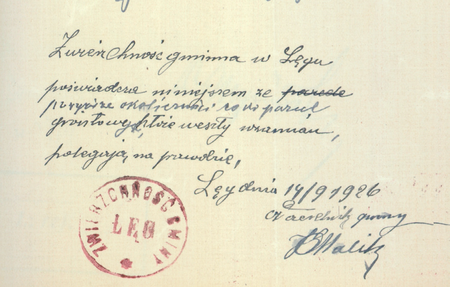 Zwierzchność gminna w Łęgu
poświadcza niniejszem że
powyższe okoliczności co do parcel
gruntowych które weszły w zamian,
polegają na prawdzie,
Łęg dnia 14/9 1926
naczelnik gminy
ZWIERZCHNOŚĆ GMINY
ŁĘG